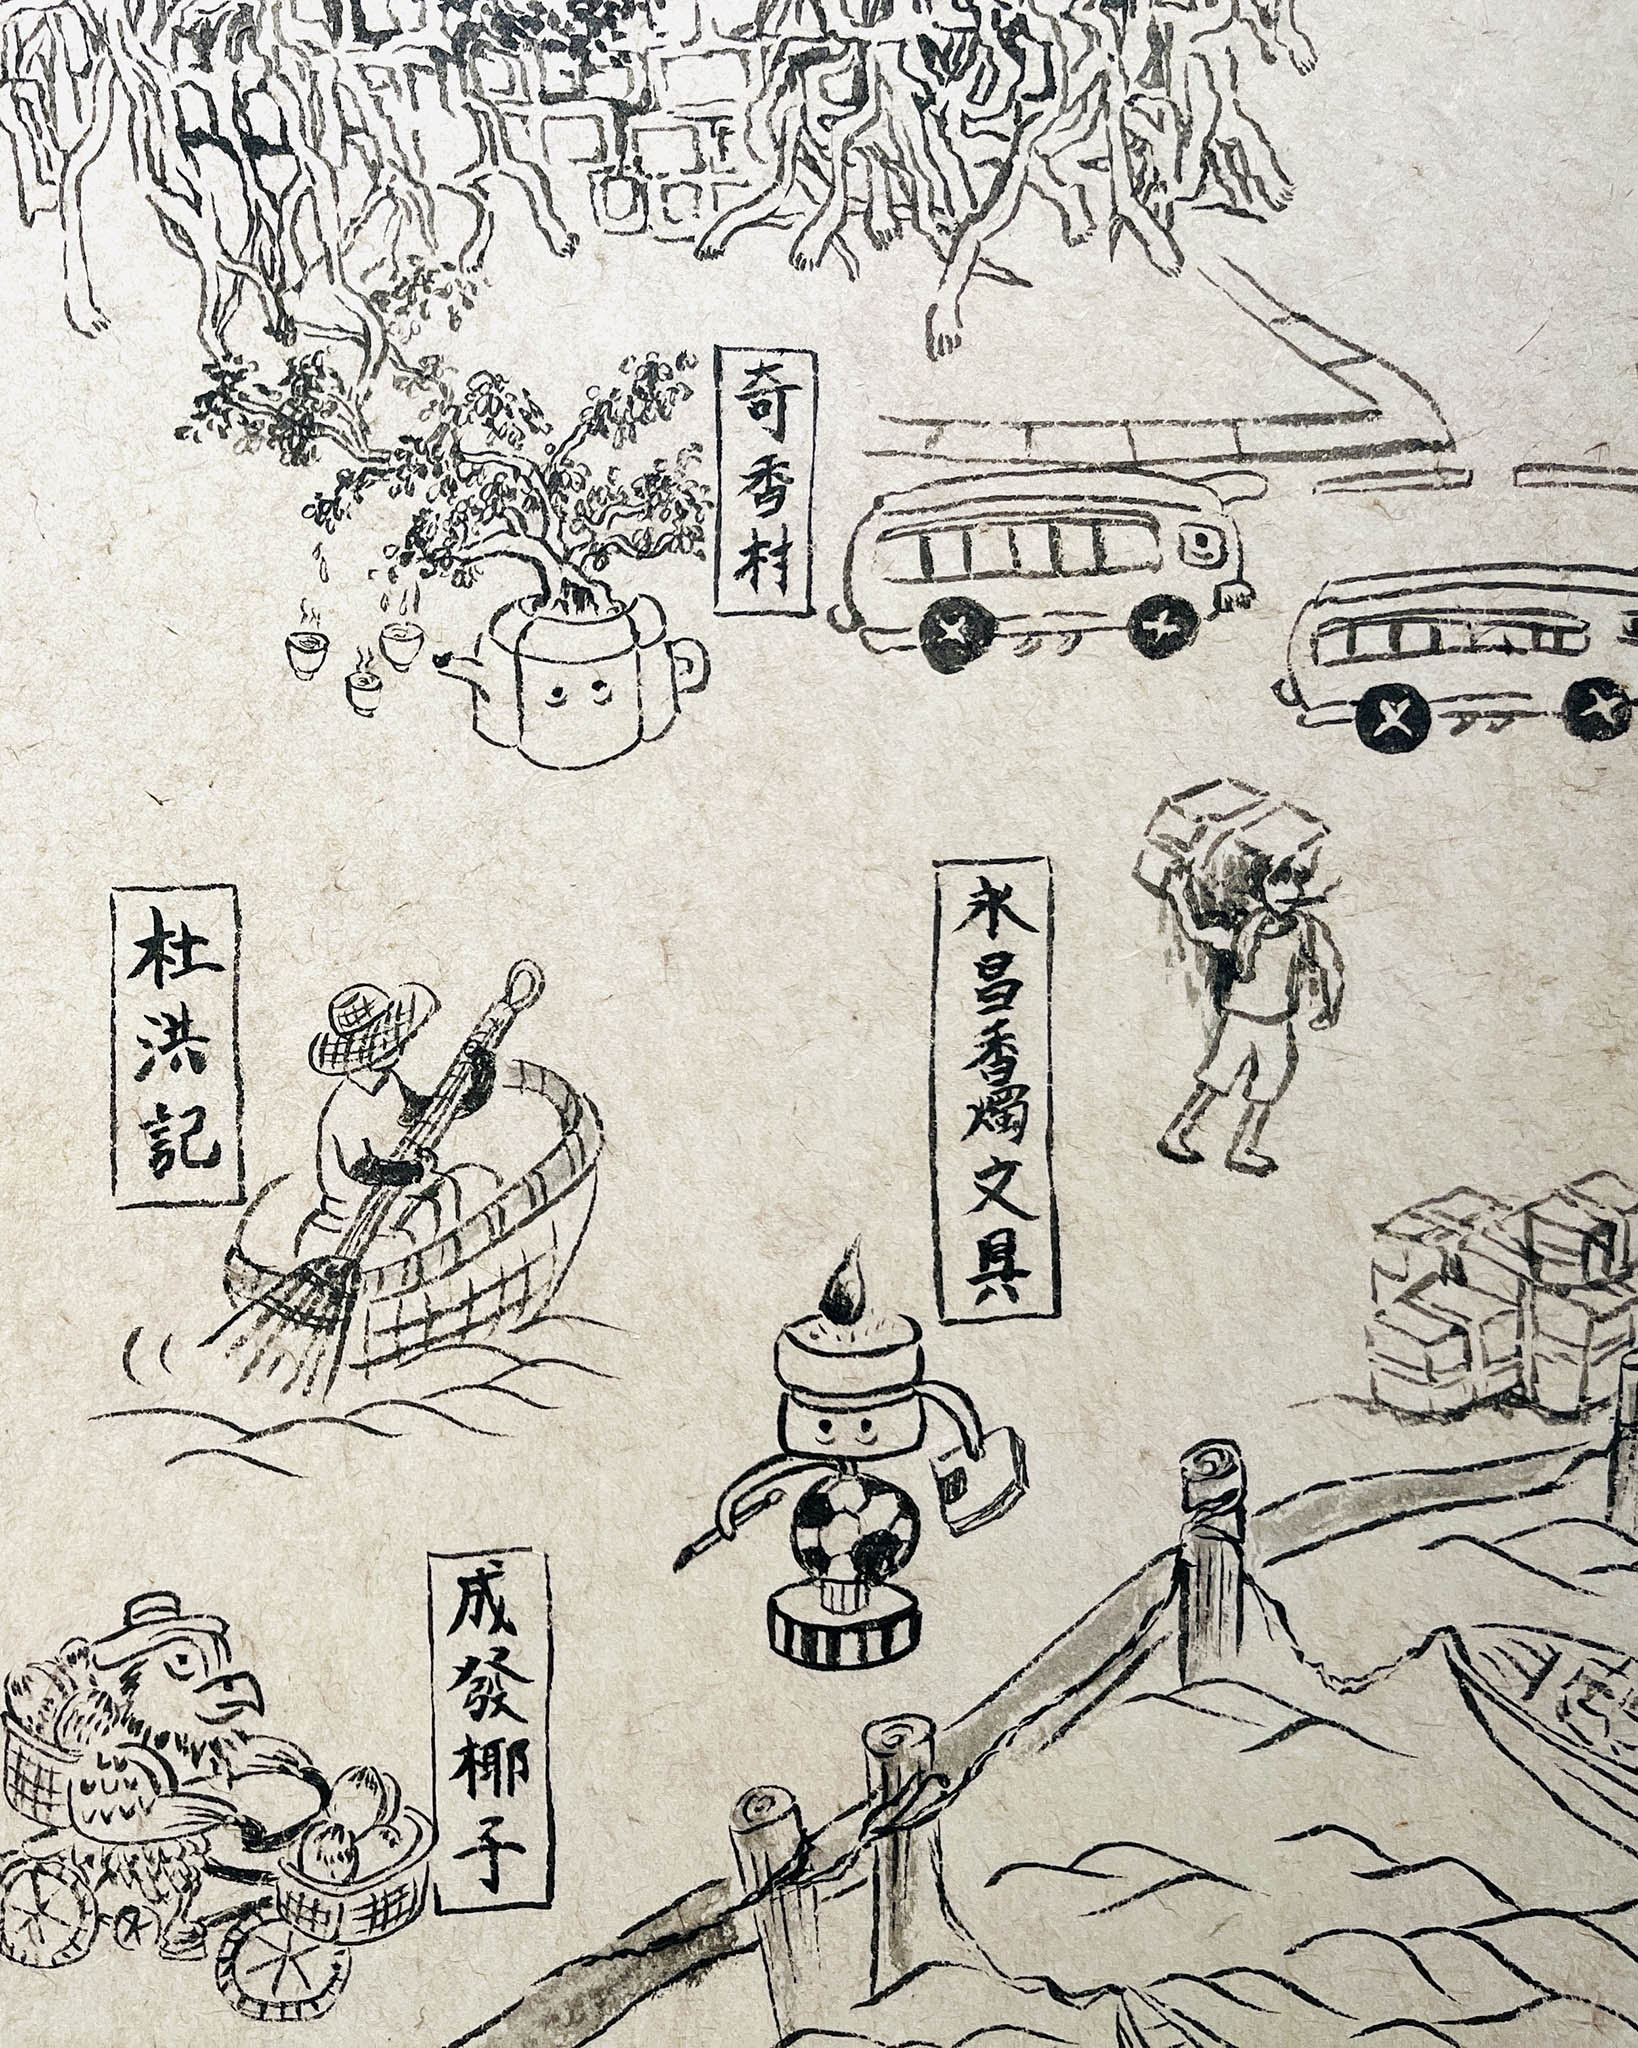 奇香村
永昌香燭文具
杜洪記
成發椰子